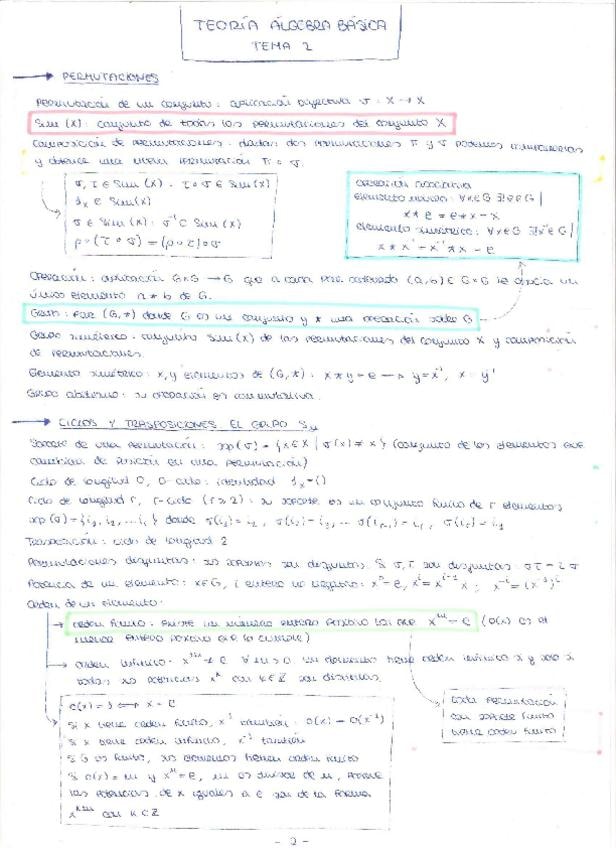 TEORÍA ÁLGEBRA BÁSICA
TEMA 2
→ PERMUTACIONES
Permutación de un conjunto: aplicación biyectiva σ: X → X
Sim (X): conjunto de todas las permutaciones del conjunto X
Composición de permutaciones: dadas dos permutaciones π y σ podemos
y obtener una nueva permutación π∘σ.
σ, τ ∈ Sim (X) . τ∘σ ∈ Sim (X)
1x ∈ Sim (X)
σ ∈ Sim (X): σ⁻¹ ⊂ Sim (X)
ρ∘(τ∘σ) = (ρ∘τ)∘σ
operación asociativa
elemento neutro: ∀x∈G ∃e∈G |
x * e = e * x = x
elemento simétrico: ∀x∈G ∃x'∈G |
x * x' = x' * x = e
Operación: aplicación G×G → G que a cada par ordenado (a,b) ∈ G×G le asocia un
único elemento a * b de G.
Grupo: par (G,*) donde G es un conjunto y * una operación sobre G
Grupo simétrico: conjunto Sim (X) de las permutaciones del conjunto X y composición
de permutaciones.
Elemento simétrico: x, y elementos de (G,*): x * y = e → y = x', x = y'
Grupo abeliano: su operación es conmutativa.
→ CICLOS Y TRASPOSICIONES EL GRUPO Sn
Soporte de una permutación: sop (σ) = {x∈X | σ(x) ≠ x} (conjunto de los elementos que
cambian de posición en una permutación)
Ciclo de longitud 0, 0-ciclo: identidad 1x = ()
Ciclo de longitud r, r-ciclo (r ≥ 2): su soporte es un conjunto finito de r elementos
sop (σ) = {i₁, i₂, ... iᵣ} donde σ(i₁) = i₂, σ(i₂) = i₃, ... σ(iᵣ₋₁) = iᵣ, σ(iᵣ) = i₁
Trasposición: ciclo de longitud 2
Permutaciones disjuntas: sus soportes son disjuntos. Si σ, τ son disjuntas: στ = τσ
Potencia de un elemento: x∈G, i entero no negativo: x⁰ = e, xⁱ = xⁱ⁻¹ x; x⁻ⁱ = (x⁻¹)ⁱ
Orden de un elemento:
→ orden finito: existe un número entero positivo tal que xᵐ = e (o(x) es el
menor entero positivo que lo cumple)
→ orden infinito: xᵐ ≠ e ∀m>0 un elemento tiene orden infinito x y solo si
todas sus potencias xᵏ con k∈Z son distintas.
o(x) = 1 ⟺ x = e
Si x tiene orden finito, x⁻¹ también: o(x) = o(x⁻¹)
Si x tiene orden infinito, x⁻¹ también
Si G es finito, sus elementos tienen orden finito
Si o(x) = m y xⁿ = e, m es divisor de n, porque
las potencias de x iguales a e son de la forma
xᵏᵐ con k∈Z
toda permutación
con soporte finito
tiene orden finito
- 2 -